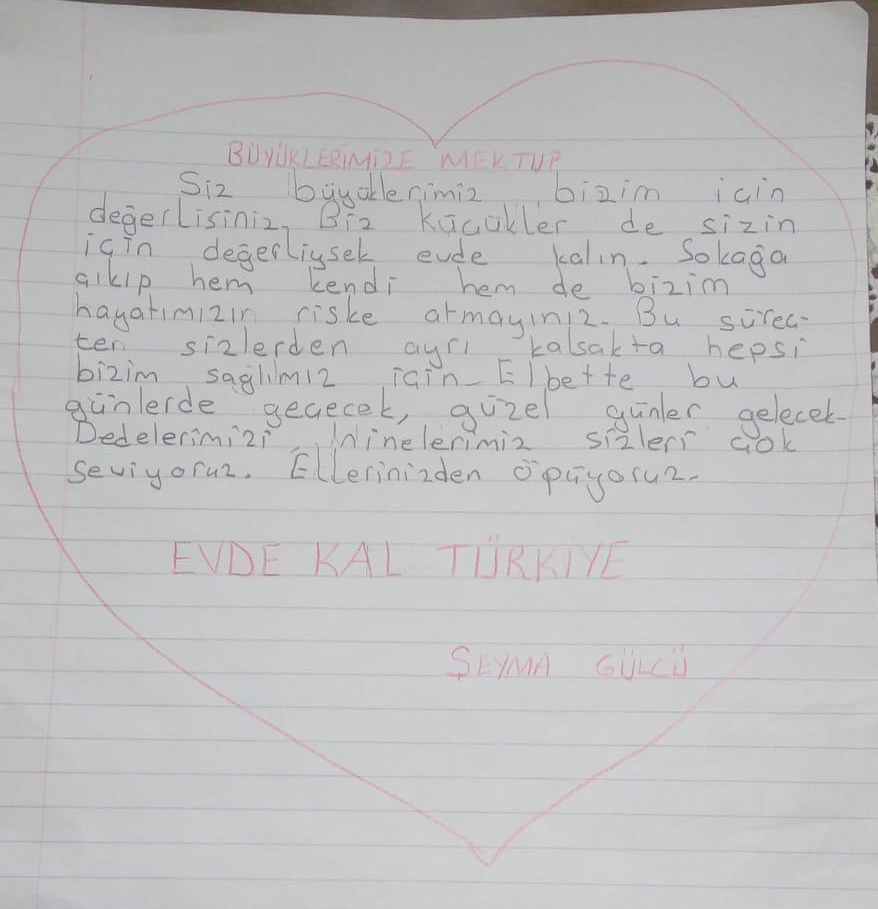 BÜYÜKLERİMİZE MEKTUP
Siz büyüklerimiz bizim için
değerlisiniz. Biz küçükler de sizin
için değerliysek evde kalın. Sokağa
çıkıp hem kendi hem de bizim
hayatımızın riske atmayınız. Bu süreç-
ten sizlerden ayrı kalsakta hepsi
bizim sağlımız için. Elbette bu
günlerde geçecek, güzel günler gelecek.
Dedelerimizi Ninelerimiz sizleri çok
seviyoruz. Ellerinizden öpüyoruz.
EVDE KAL TÜRKİYE
ŞEYMA GÜLCÜ